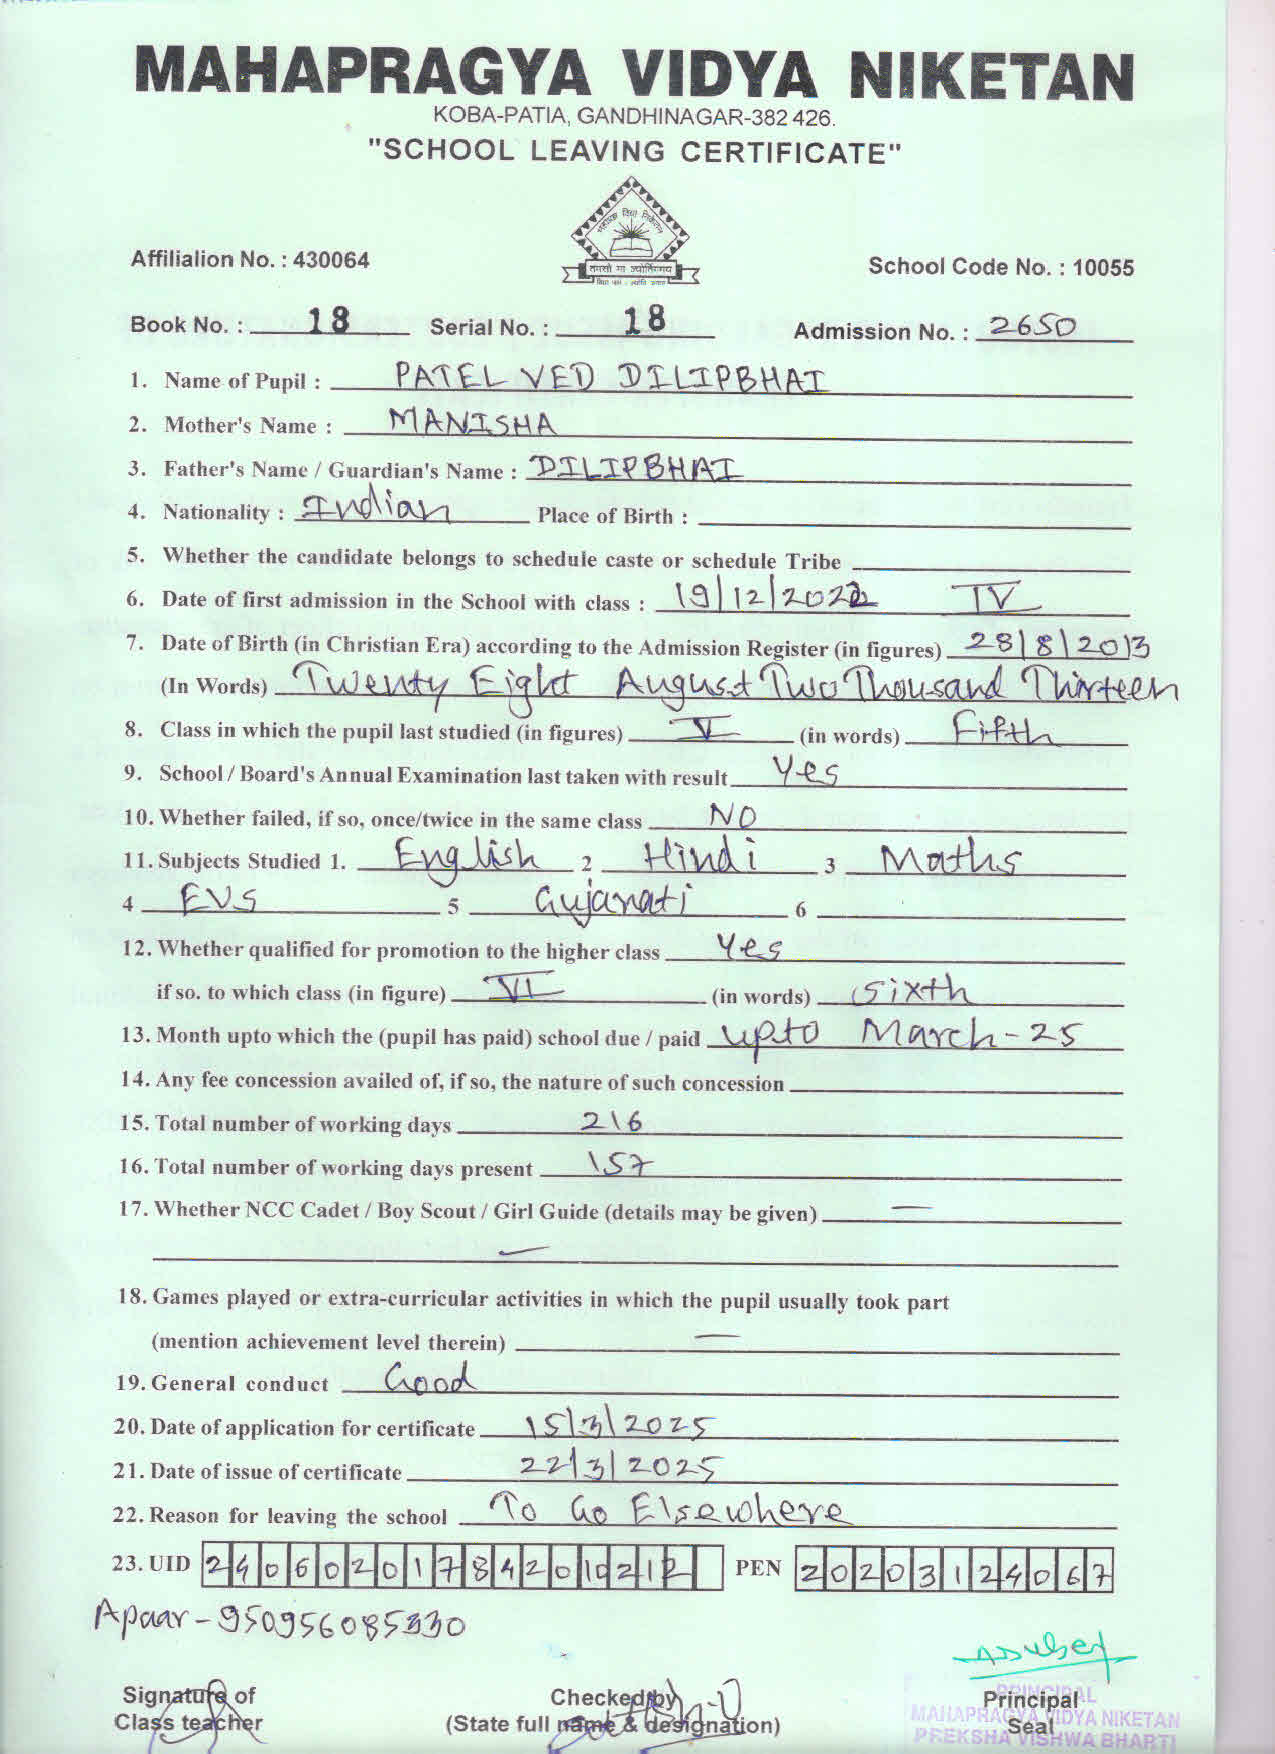 MAHAPRAGYA VIDYA NIKETAN
KOBA-PATIA, GANDHINAGAR-382 426.
"SCHOOL LEAVING CERTIFICATE"
तमसो मा ज्योतिर्गमय
Affilialion No. : 430064 School Code No. : 10055
Book No. : 18 Serial No. : 18 Admission No. : 2650
1. Name of Pupil : PATEL VED DILIPBHAI
2. Mother's Name : MANISHA
3. Father's Name / Guardian's Name : DILIPBHAI
4. Nationality : Indian Place of Birth :
5. Whether the candidate belongs to schedule caste or schedule Tribe
6. Date of first admission in the School with class : 19/12/2022 IV
7. Date of Birth (in Christian Era) according to the Admission Register (in figures) 28/8/2013
(In Words) Twenty Eight August Two Thousand Thirteen
8. Class in which the pupil last studied (in figures) V (in words) Fifth
9. School / Board's Annual Examination last taken with result Yes
10. Whether failed, if so, once/twice in the same class NO
11. Subjects Studied 1. English 2 Hindi 3 Maths
4 EVS 5 Gujarati 6
12. Whether qualified for promotion to the higher class Yes
if so. to which class (in figure) VI (in words) sixth
13. Month upto which the (pupil has paid) school due / paid upto March-25
14. Any fee concession availed of, if so, the nature of such concession
15. Total number of working days 216
16. Total number of working days present 157
17. Whether NCC Cadet / Boy Scout / Girl Guide (details may be given) —
—
18. Games played or extra-curricular activities in which the pupil usually took part
(mention achievement level therein) —
19. General conduct Good
20. Date of application for certificate 15/3/2025
21. Date of issue of certificate 22/3/2025
22. Reason for leaving the school To Go Elsewhere
23. UID 240602017842010212 PEN 20203124067
Apaar - 950956085330
Signature of Class teacher
Checked by (State full name & designation)
Principal Seal
PRINCIPAL
MAHAPRAGYA VIDYA NIKETAN
PREKSHA VISHWA BHARTI